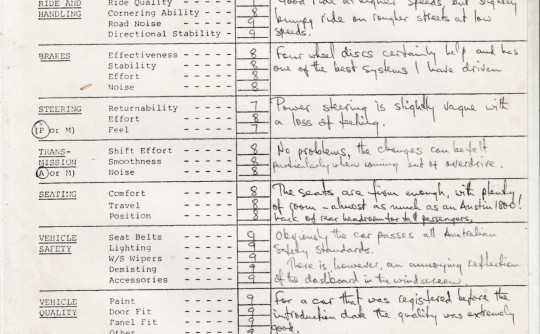 RIDE AND Ride Quality - - - -
HANDLING Cornering Ability - - - - 8
Road Noise - - - - 9
Directional Stability - - - - 9
Good ride at higher speeds, but slightly
bumpy ride on rougher streets at low
speeds.
BRAKES Effectiveness - - - - 8
Stability - - - - 8
Effort - - - - 8
Noise - - - - 8
Four wheel discs certainly help and has
one of the best systems I have driven
STEERING Returnability - - - - 7
Effort - - - - 8
(P or M) Feel - - - - 7
Power steering is slightly vague with
a loss of feeling.
TRANS- Shift Effort - - - - 8
MISSION Smoothness - - - - 8
(A or M) Noise - - - - 8
No problems, the changes can be felt
particularly when coming out of overdrive.
SEATING Comfort - - - - 8
Travel - - - - 8
Position - - - - 8
The seats are firm enough, with plenty
of room - almost as much as an Austin 1800!
Lack of rear headroom for tall passengers.
VEHICLE Seat Belts - - - - 9
SAFETY Lighting - - - - 9
W/S Wipers - - - - 9
Demisting - - - - 9
Accessories - - - - 9
Obviously the car passes all Australian
Safety Standards.
There is however, an annoying reflection
of the dashboard in the windscreen
VEHICLE Paint - - - - 9
QUALITY Door Fit - - - - 9
Panel Fit - - - - 9
Other
For a car that was registered before the
introduction date the quality was extremely
good.